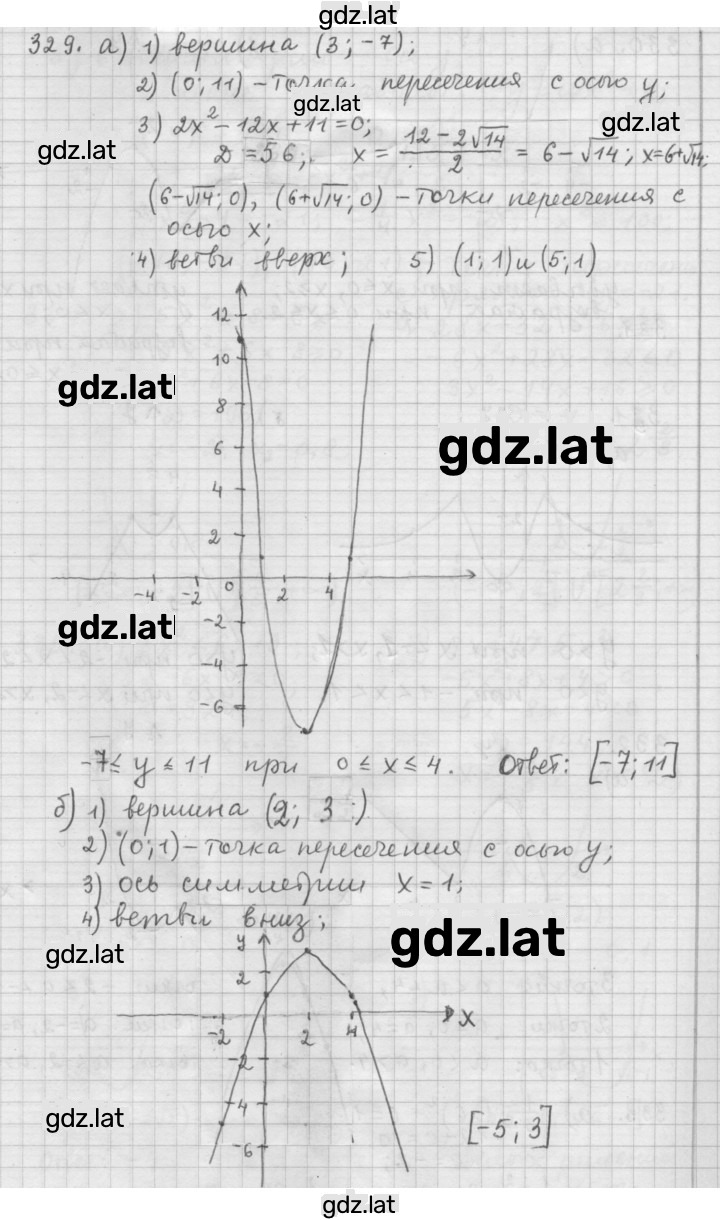 gdz.lat
329. а) 1) вершина (3; -7);
2) (0; 11) - точка пересечения с осью y;
gdz.lat
3) 2x² - 12x + 11 = 0;
gdz.lat
gdz.lat
D = 56; x = (12 - 2√14)/2 = 6 - √14; x = 6 + √14;
(6-√14; 0), (6+√14; 0) - точки пересечения с
осью x;
4) ветви вверх; 5) (1; 1) и (5; 1)
12
10
gdz.lat
8
gdz.lat
6
4
2
-4 -2 0 2 4
gdz.lat
-2
-4
-6
-7 ≤ y ≤ 11 при 0 ≤ x ≤ 4. Ответ: [-7; 11]
б) 1) вершина (2; 3)
2) (0; 1) - точка пересечения с осью y;
3) ось симметрии x = 1;
4) ветви вниз;
gdz.lat
gdz.lat
y
2
-2 2 4 x
-2
-4
gdz.lat
[-5; 3]
-6
gdz.lat